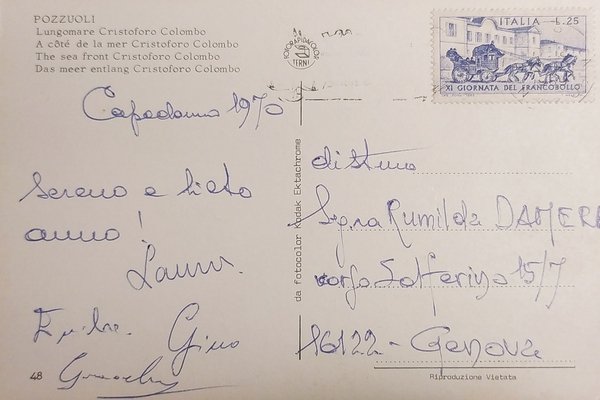 POZZUOLI
Lungomare Cristoforo Colombo
A côté de la mer Cristoforo Colombo
The sea front Cristoforo Colombo
Das meer entlang Cristoforo Colombo
FOTORAPIDACOLOR
TERNI
ITALIA L.25
XI GIORNATA DEL FRANCOBOLLO
Capodanno 1970
Sereno e lieto
anno!
Laura
Gino
48
da fotocolor Kodak Ektachrome
distma
Sig.ra Rumilda DAMERI
corso Solferino 15/7
16122 - Genova
Riproduzione Vietata